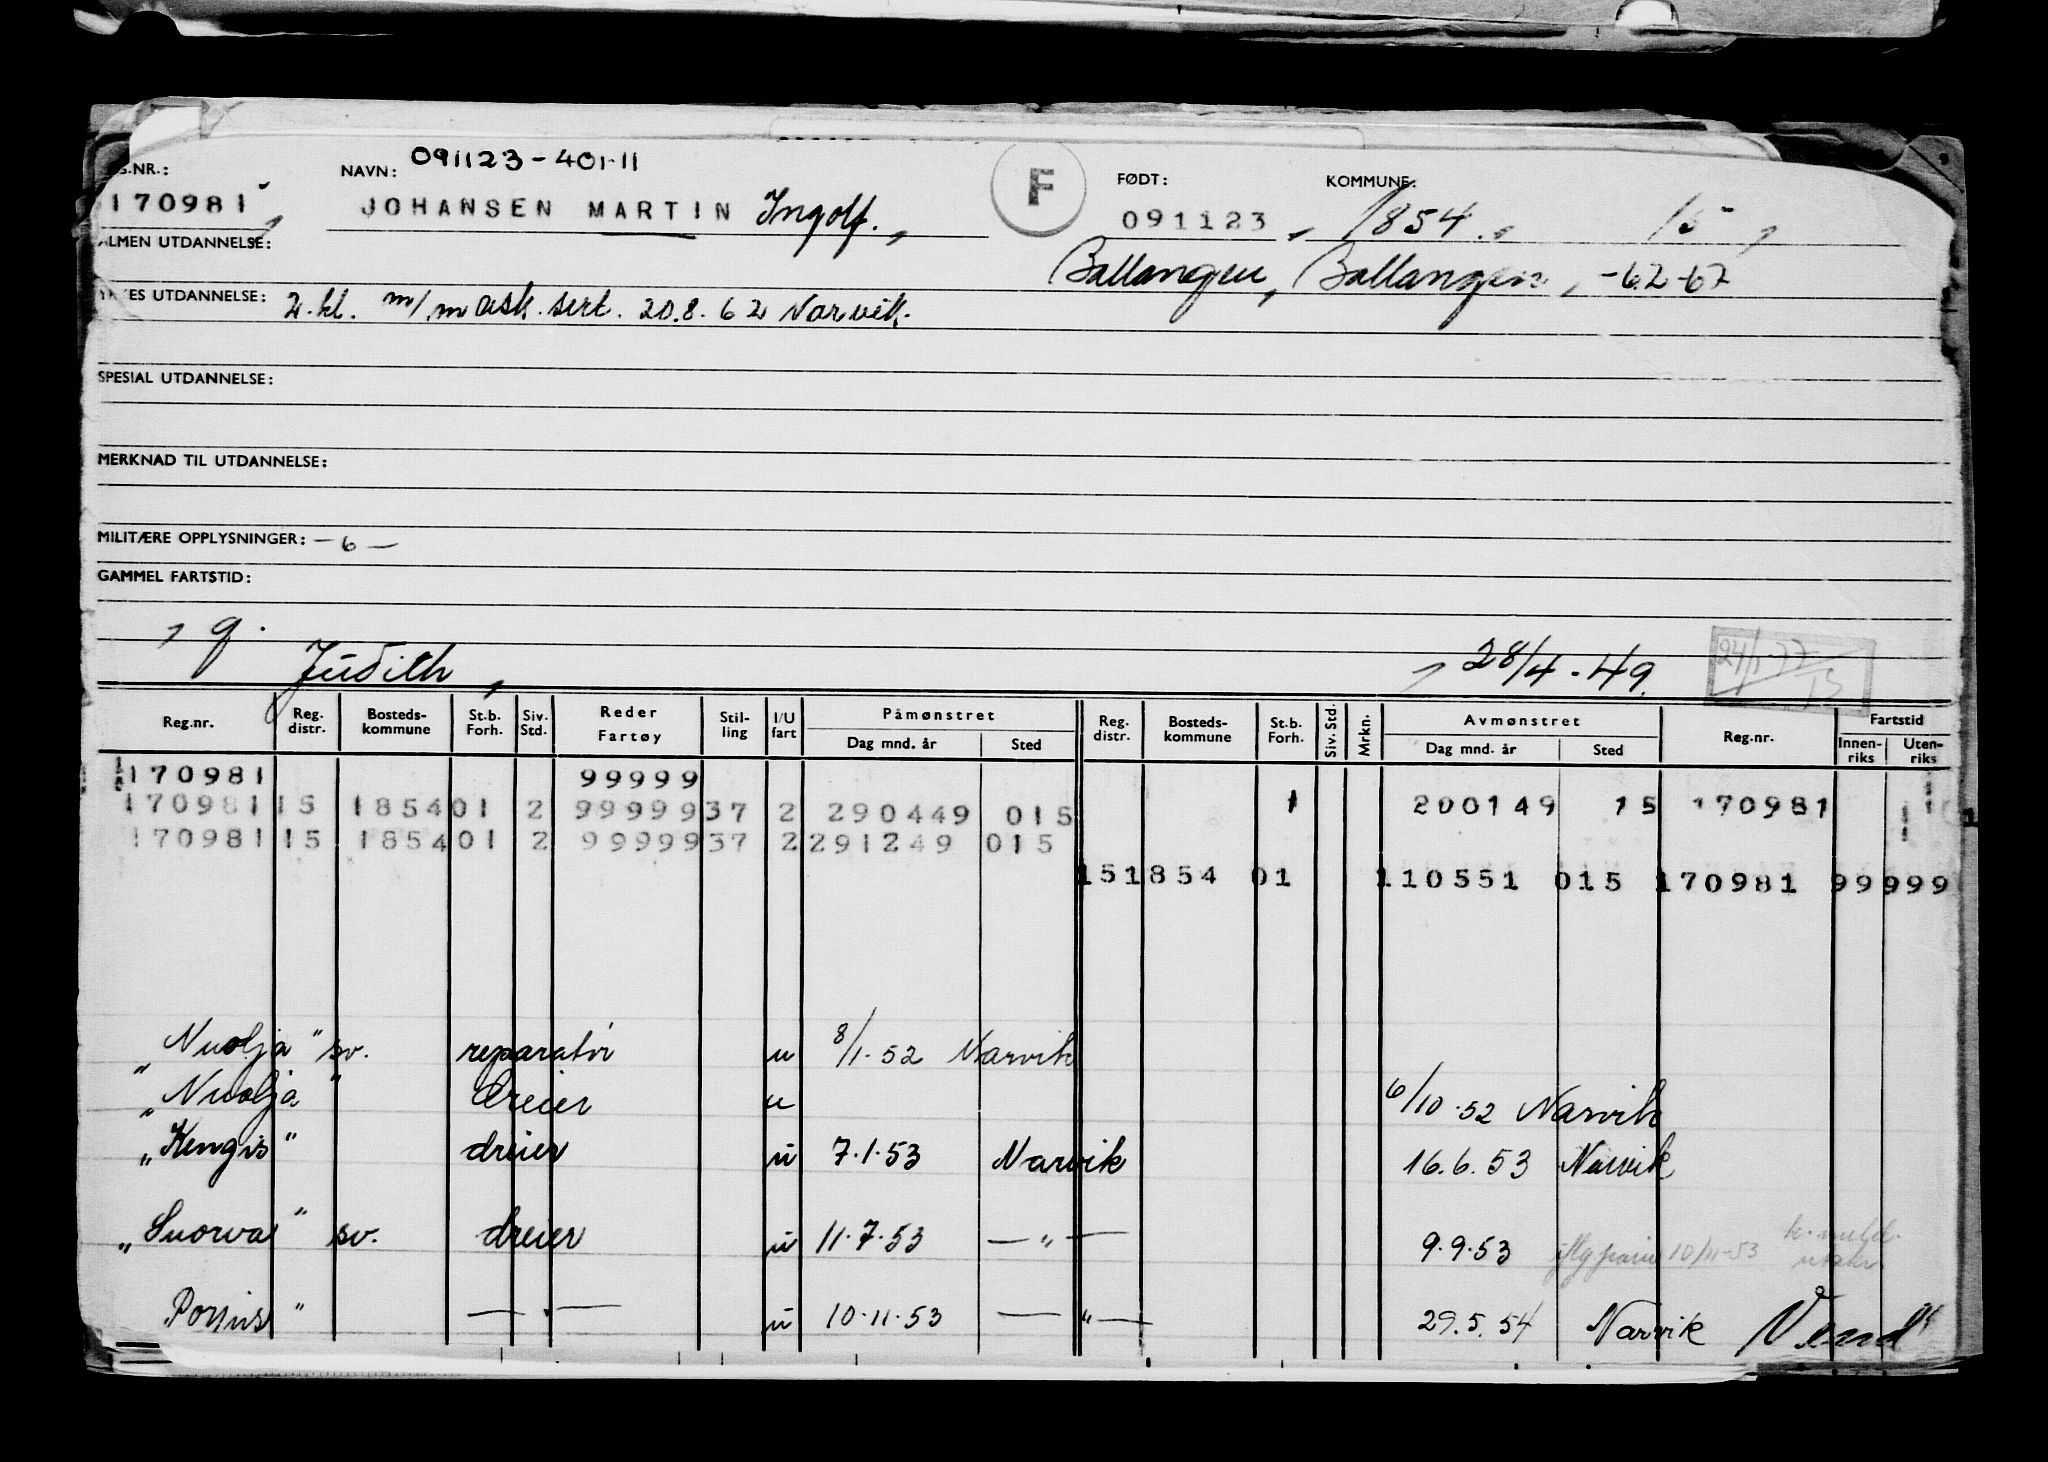 091123-401-11
G.NR.: NAVN: F FØDT: KOMMUNE:
170981 JOHANSEN MARTIN Ingolf. 091123 1854. 15
ALMEN UTDANNELSE:
Ballangen, Ballangen, -62-67
YRKES UTDANNELSE: 2. kl. m/mask. sert. 20.8.62 Narvik.
SPESIAL UTDANNELSE:
MERKNAD TIL UTDANNELSE:
MILITÆRE OPPLYSNINGER: -6-
GAMMEL FARTSTID:
g.
Judith, 28/4-49.
Reg.nr. Reg. distr. Bosteds-kommune St.b. Forh. Siv. Std. Reder Fartøy Stil-ling I/U fart Påmønstret Dag mnd. år Sted Reg. distr. Bosteds-kommune St.b. Forh. Siv. Std. Mrkn. Avmønstret Dag mnd. år Sted Reg.nr. Fartstid Innen-riks Uten-riks
170981 99999
170981 15 1854 01 2 99999 37 2 290449 015 1 200149 15 170981
170981 15 1854 01 2 99999 37 2 291249 015
15 1854 01 110551 015 170981 99999
„Nuolja" sv. reparatör u 8/1-52 Narvik
„Nuolja" dreier u 6/10-52 Narvik
„Kengis" dreier u 7.1.53 Narvik 16.6.53 Narvik
„Suorva" sv. dreier u 11.7.53 —"— 9.9.53 10/11-53
Porjus" —"— u 10.11.53 —"— 29.5.54 Narvik Vend